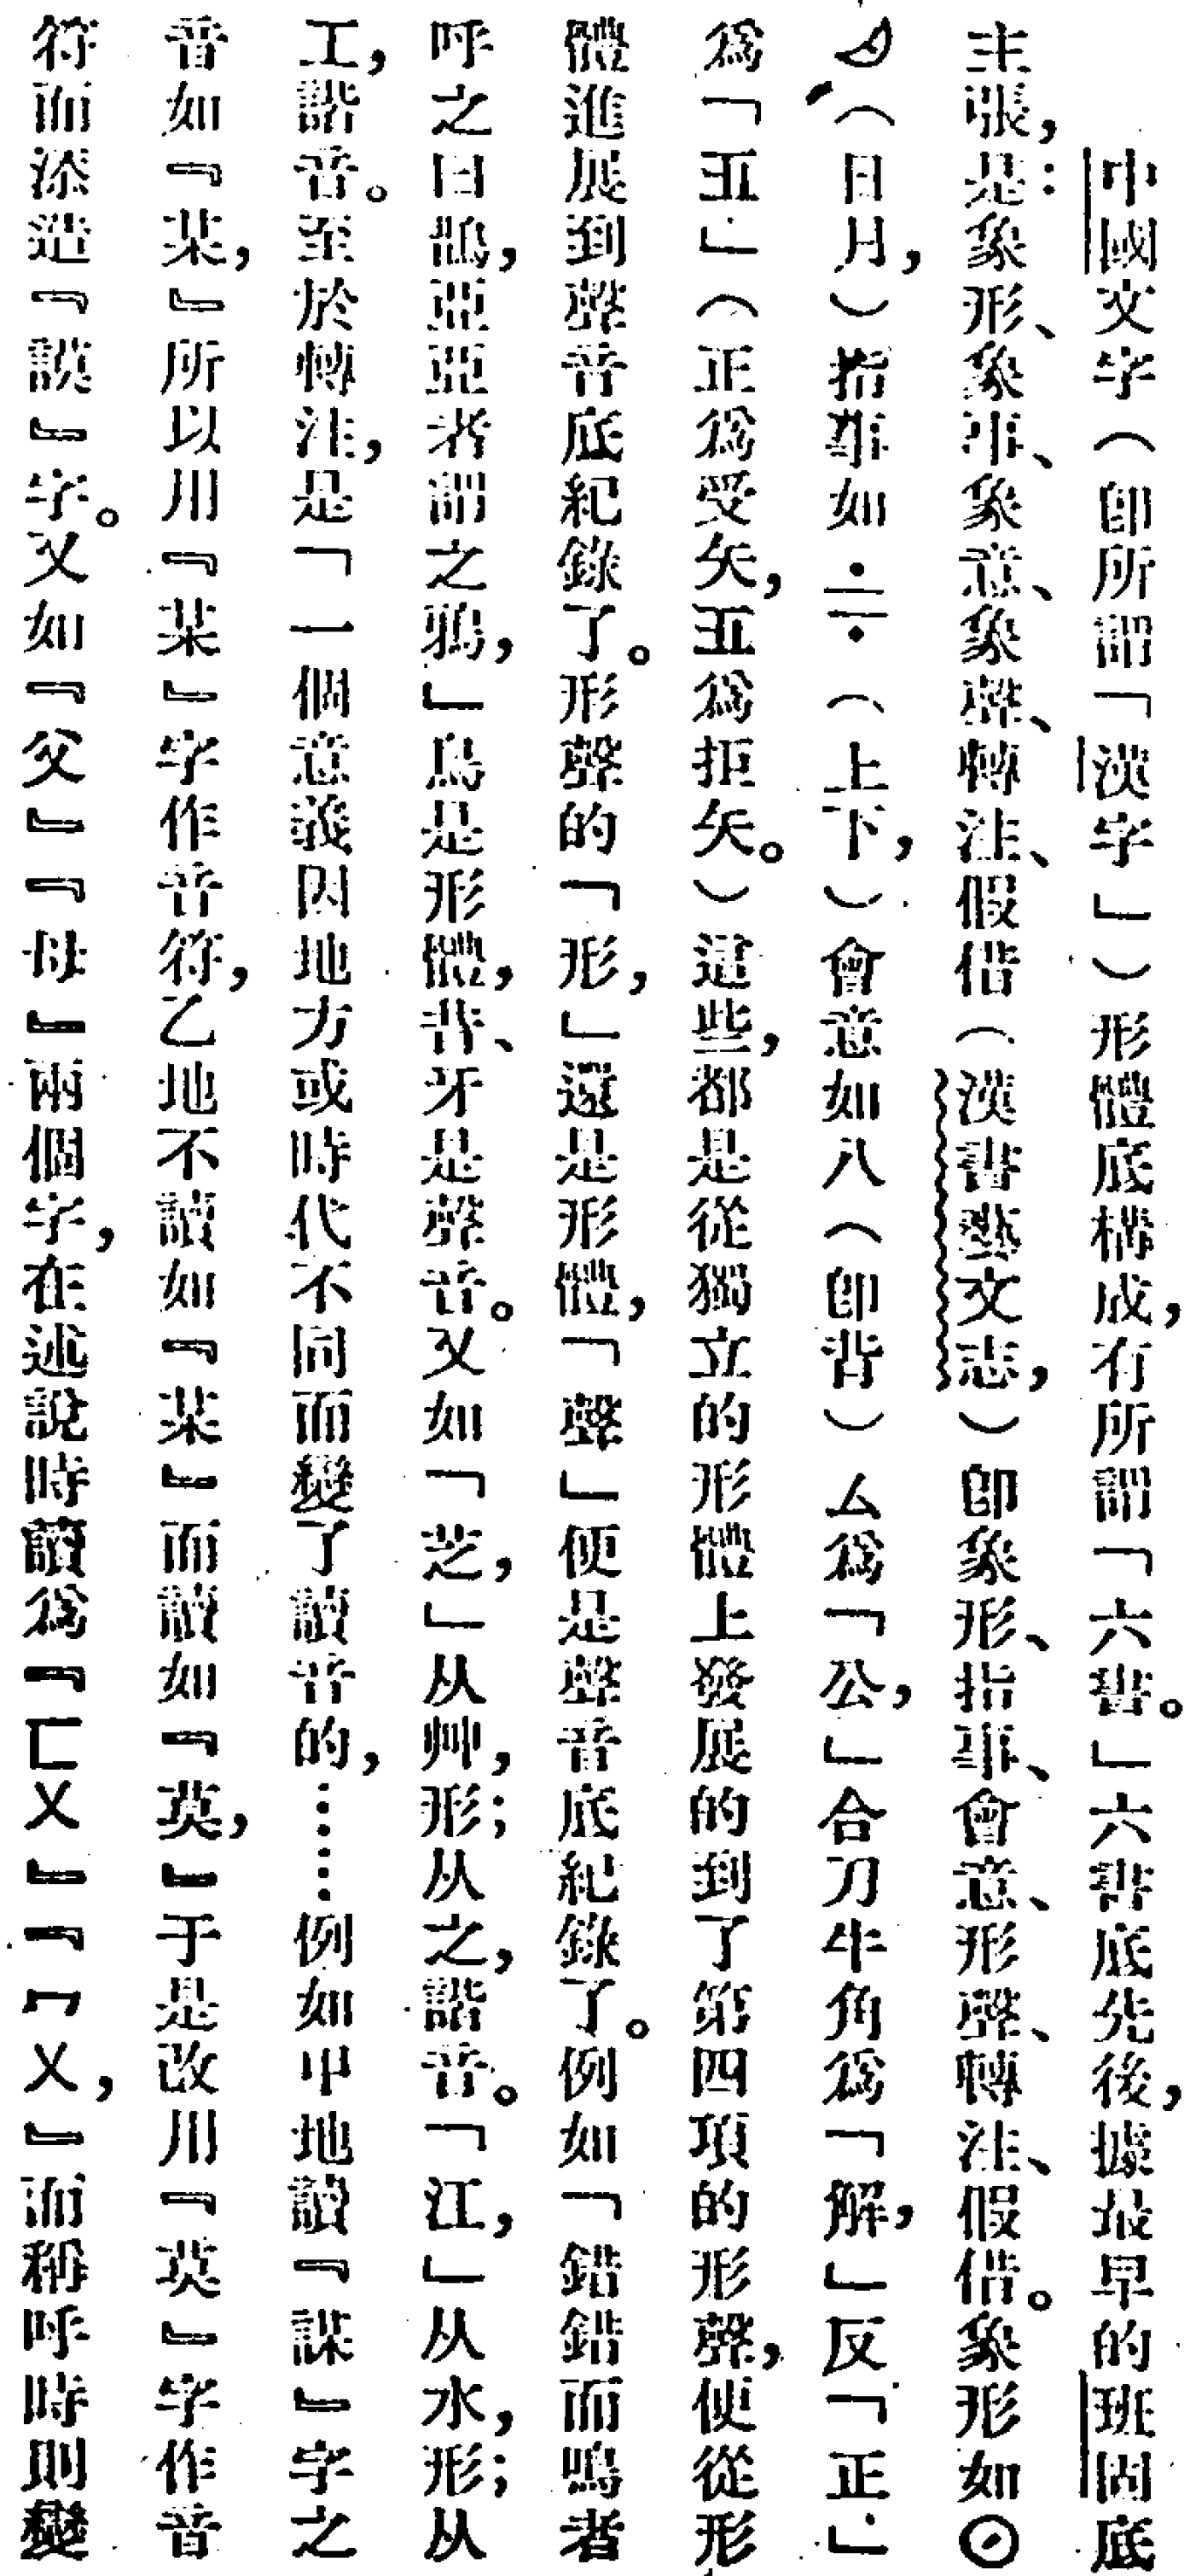 中國文字(即所謂「漢字」)形體底構成,有所謂「六書。」六書底先後,據最早的班固底
主張,是:象形、象事、象意、象聲、轉注、假借(漢書藝文志,)即象形、指事、會意、形聲、轉注、假借。象形如☉
(日月,)指事如(上下,)會意如八(即背)厶爲「公,」合刀牛角爲「解,」反「正」
爲「」(正爲受矢,爲拒矢。)這些,都是從獨立的形體上發展的到了第四項的形聲,便從形
體進展到聲音底紀錄了。形聲的「形,」還是形體,「聲」便是聲音底紀錄了。例如「錯錯而鳴者
呼之曰鵲,亞亞者謂之鴉,」鳥是形體,昔、牙是聲音。又如「芝,」从艸,形;从之,諧音。「江,」从水,形;从
工,諧音。至於轉注,是「一個意義因地方或時代不同而變了讀音的,……例如甲地讀『謀』字之
音如『某,』所以用『某』字作音符,乙地不讀如『某』而讀如『莫,』于是改用『莫』字作音
符而添造『謨』字。又如『父』『母』兩個字,在述說時讀爲『ㄈㄨ』『ㄇㄨ,』而稱呼時則變